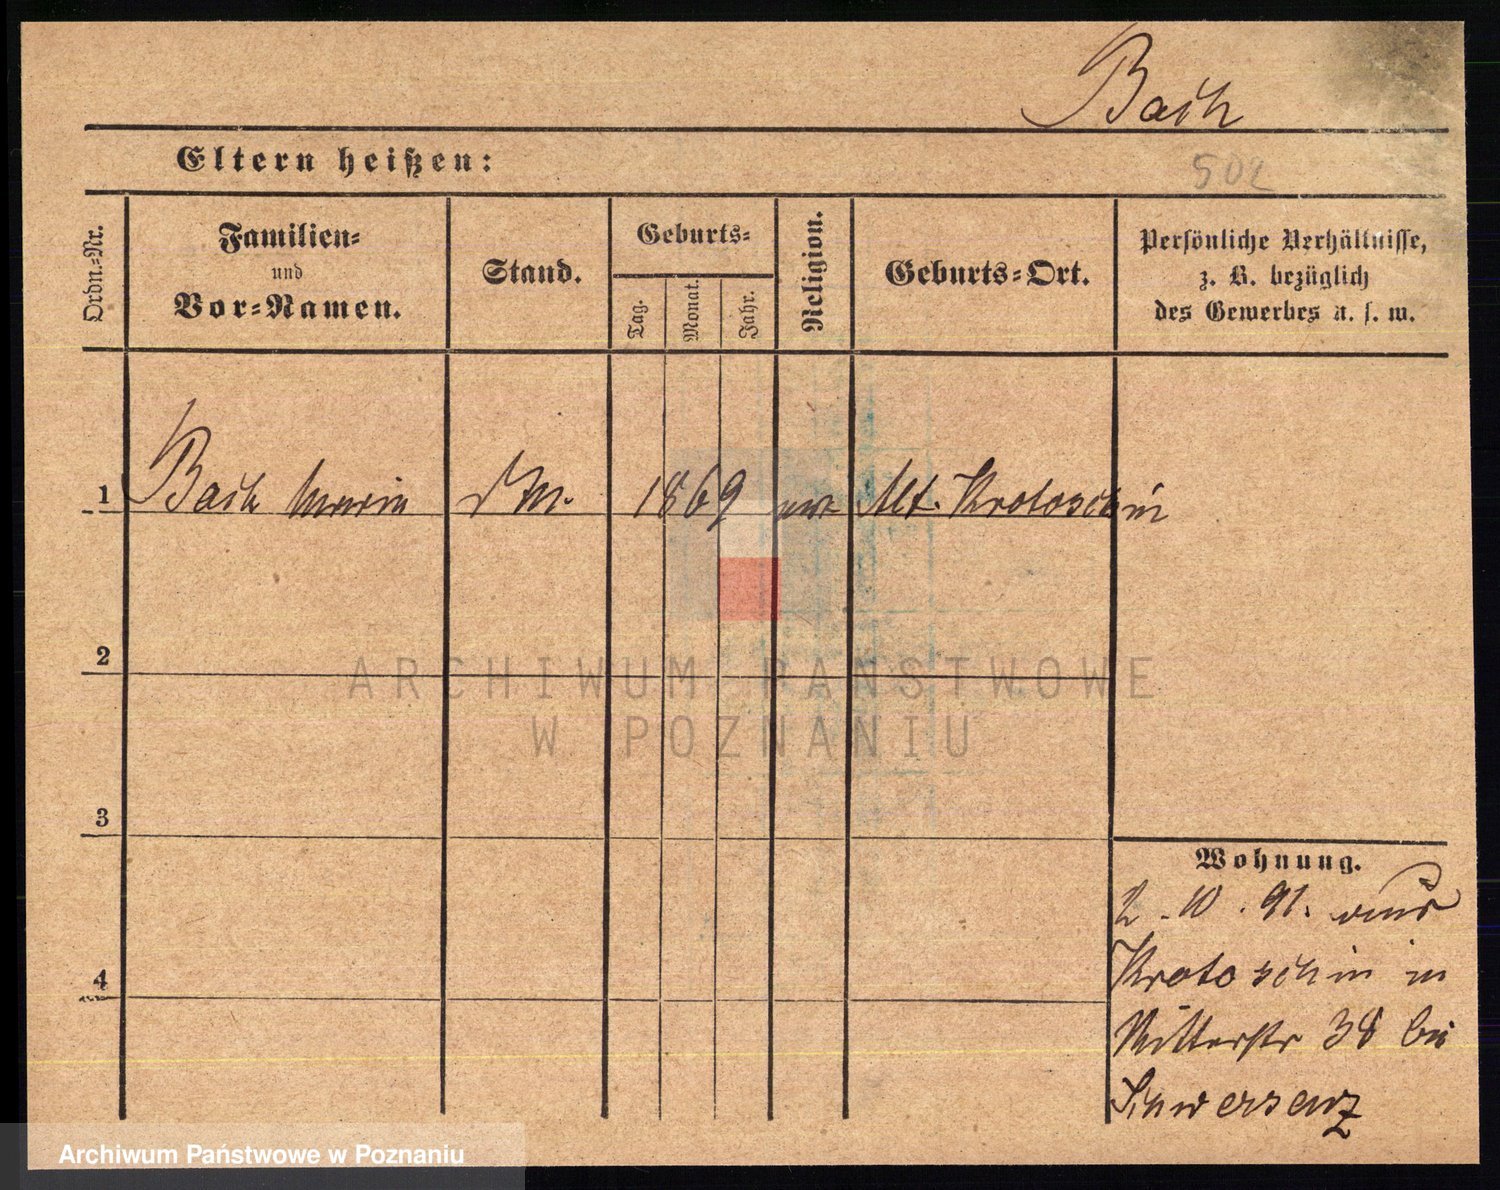 Bach
Eltern heißen:
502
Ordn.-Nr.
Familien-
und
Vor-Namen.
Stand.
Geburts-
Tag.
Monat.
Jahr.
Religion.
Geburts-Ort.
Persönliche Verhältnisse,
z. B. bezüglich
des Gewerbes u. s. w.
1 Bach Maria 1869 Alt. Krotoschin
2
ARCHIWUM PAŃSTWOWE
W POZNANIU
3
Wohnung.
2.10.91. aus
Krotoschin in
4
Ritterstr 38 bei
Archiwum Państwowe w Poznaniu